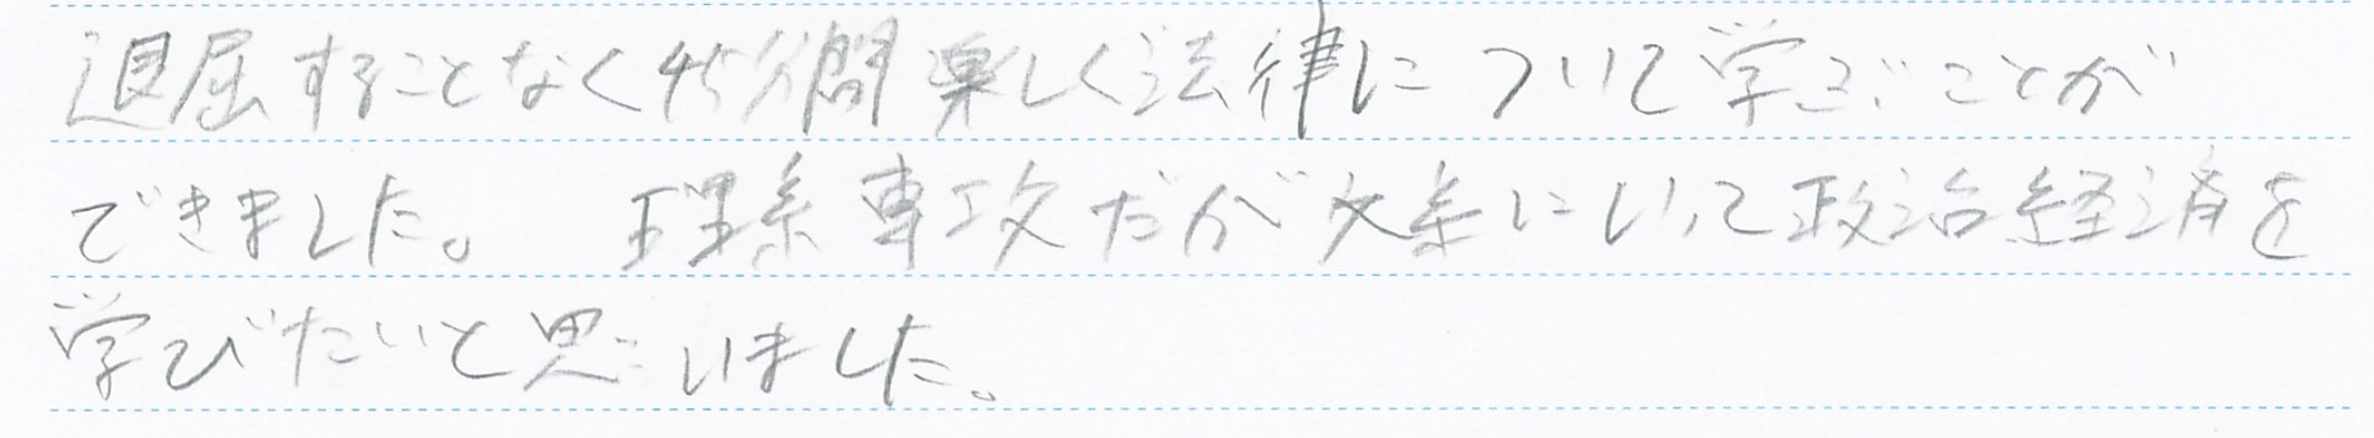 退屈することなく45分間楽しく法律について学ぶことが
できました。 理系専攻だが文系にいって政治経済を
学びたいと思いました。